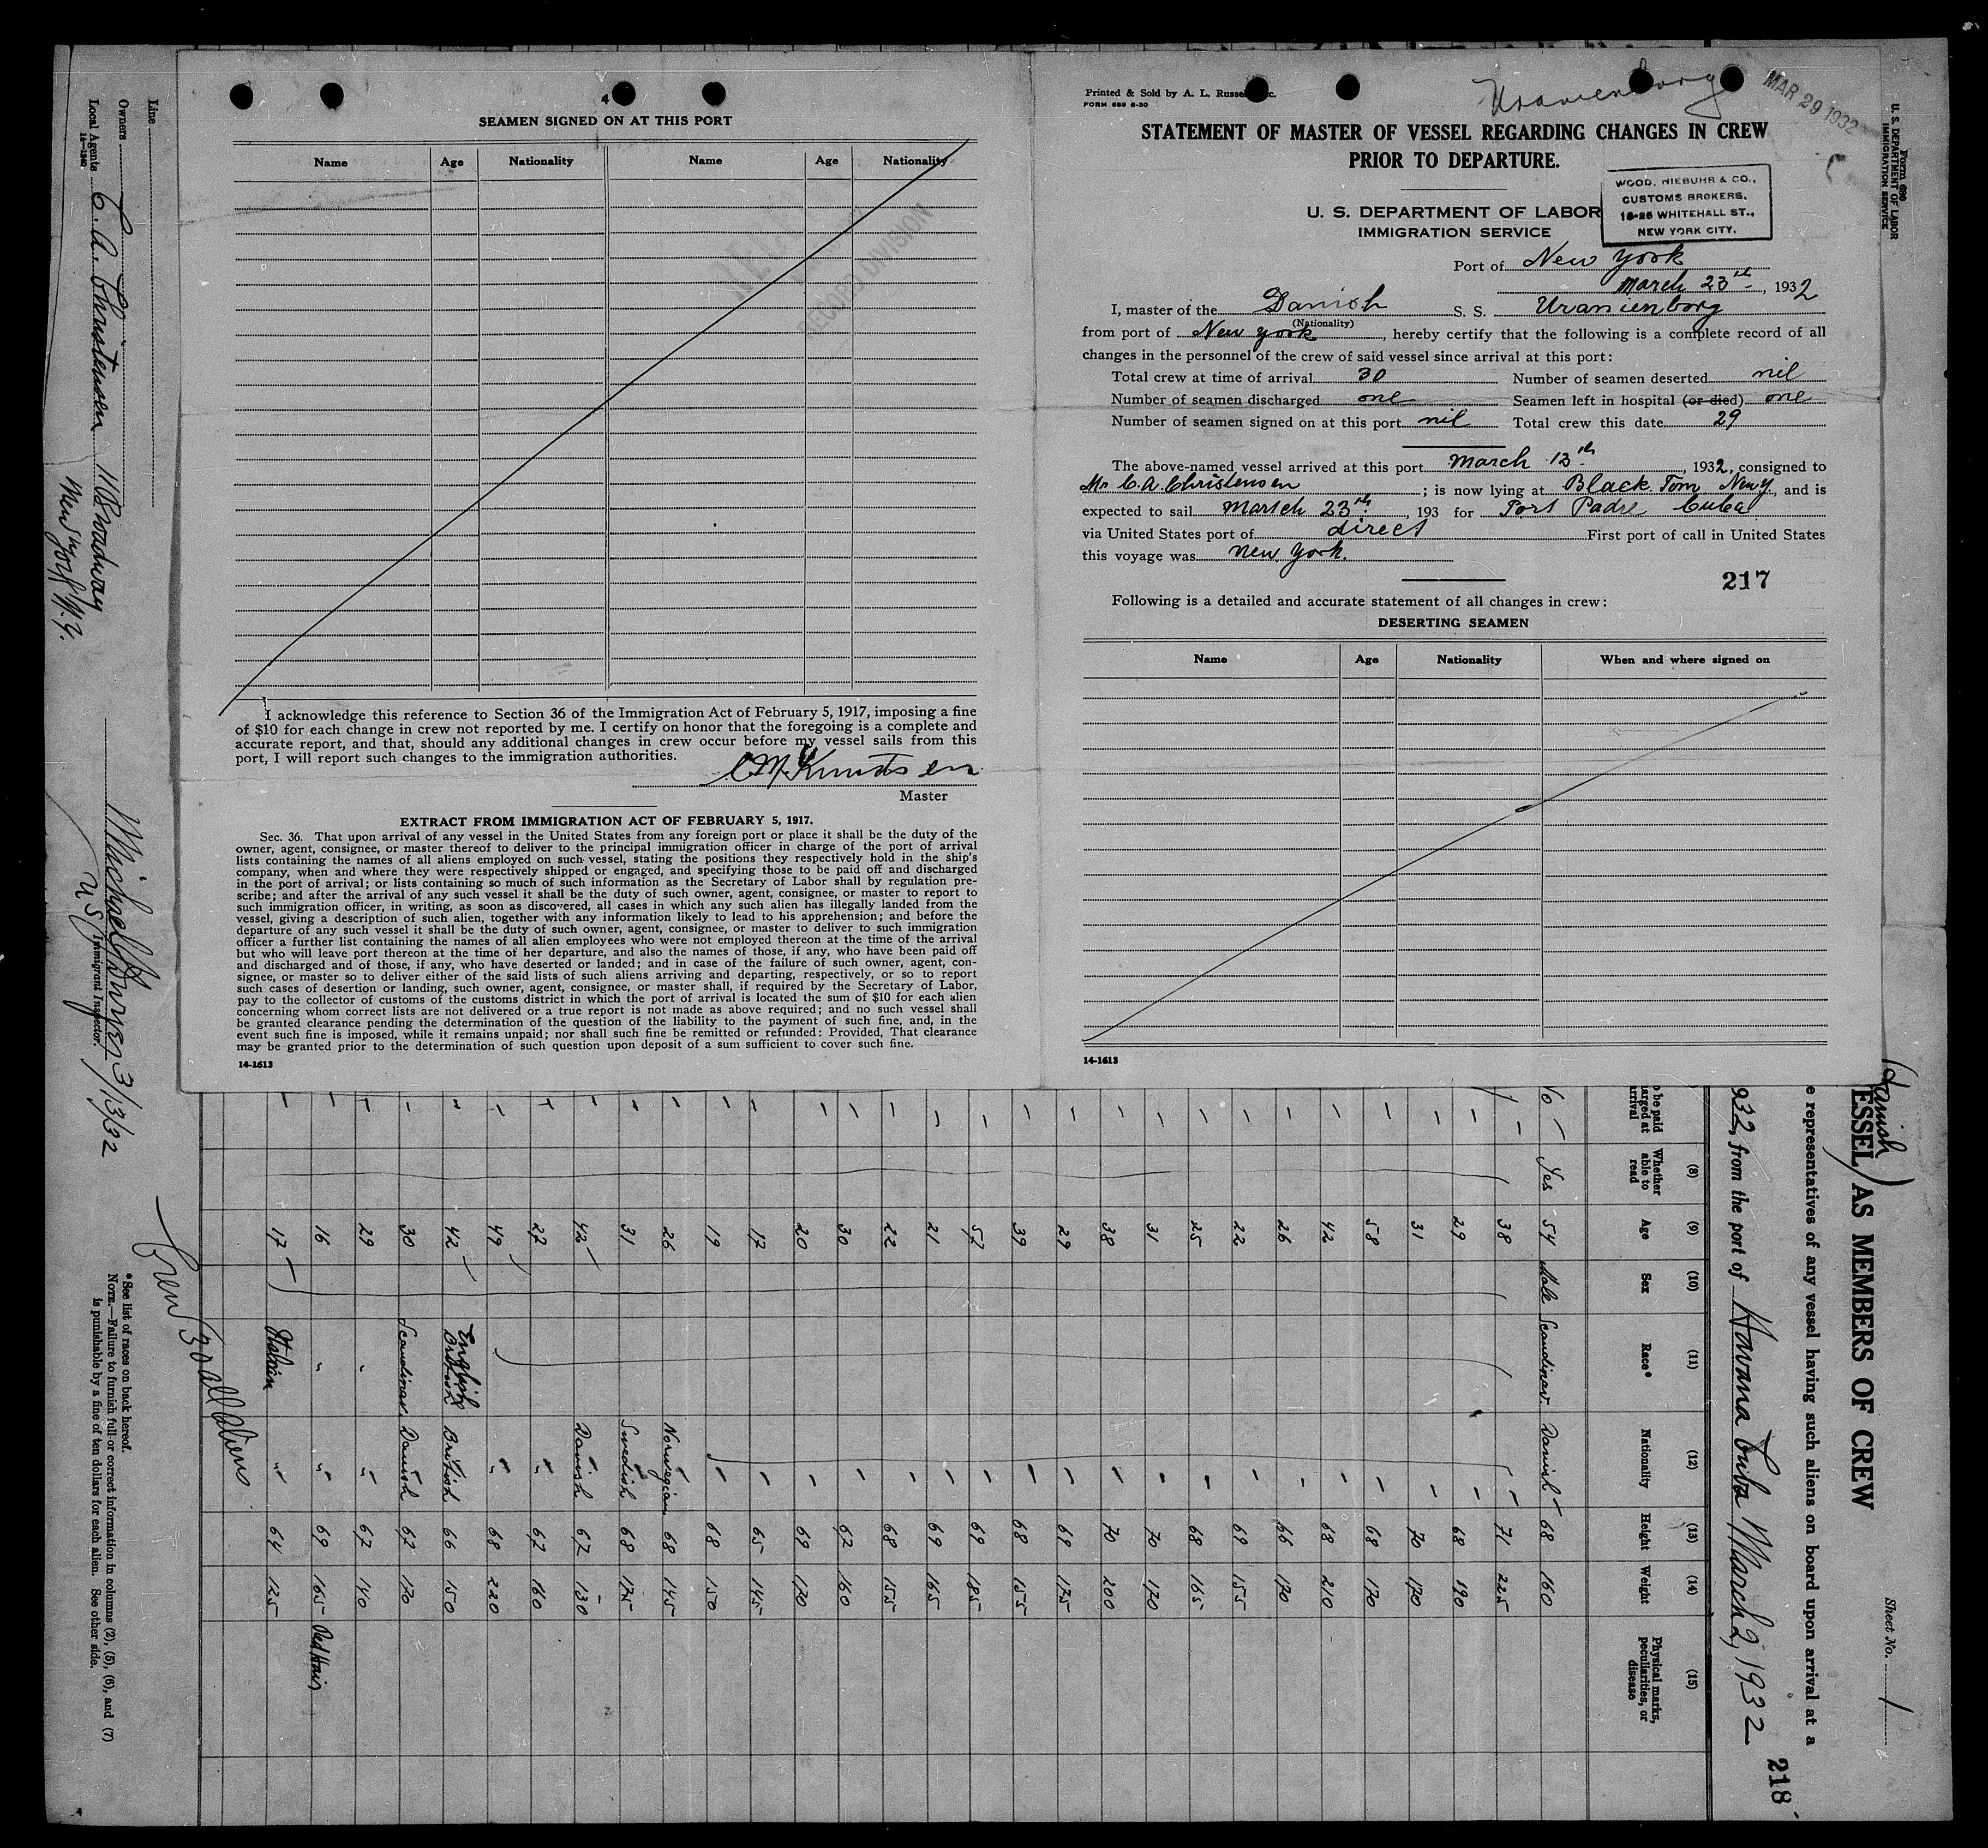 4
SEAMEN SIGNED ON AT THIS PORT
Name Age Nationality Name Age Nationality
RECORD DIVISION
I acknowledge this reference to Section 36 of the Immigration Act of February 5, 1917, imposing a fine
of $10 for each change in crew not reported by me. I certify on honor that the foregoing is a complete and
accurate report, and that, should any additional changes in crew occur before my vessel sails from this
port, I will report such changes to the immigration authorities.
C M Knudsen
Master
EXTRACT FROM IMMIGRATION ACT OF FEBRUARY 5, 1917.
Sec. 36. That upon arrival of any vessel in the United States from any foreign port or place it shall be the duty of the
owner, agent, consignee, or master thereof to deliver to the principal immigration officer in charge of the port of arrival
lists containing the names of all aliens employed on such vessel, stating the positions they respectively hold in the ship's
company, when and where they were respectively shipped or engaged, and specifying those to be paid off and discharged
in the port of arrival; or lists containing so much of such information as the Secretary of Labor shall by regulation pre-
scribe; and after the arrival of any such vessel it shall be the duty of such owner, agent, consignee, or master to report to
such immigration officer, in writing, as soon as discovered, all cases in which any such alien has illegally landed from the
vessel, giving a description of such alien, together with any information likely to lead to his apprehension; and before the
departure of any such vessel it shall be the duty of such owner, agent, consignee, or master to deliver to such immigration
officer a further list containing the names of all alien employees who were not employed thereon at the time of the arrival
but who will leave port thereon at the time of her departure, and also the names of those, if any, who have been paid off
and discharged and of those, if any, who have deserted or landed; and in case of the failure of such owner, agent, con-
signee, or master so to deliver either of the said lists of such aliens arriving and departing, respectively, or so to report
such cases of desertion or landing, such owner, agent, consignee, or master shall, if required by the Secretary of Labor,
pay to the collector of customs of the customs district in which the port of arrival is located the sum of $10 for each alien
concerning whom correct lists are not delivered or a true report is not made as above required; and no such vessel shall
be granted clearance pending the determination of the question of the liability to the payment of such fine, and, in the
event such fine is imposed, while it remains unpaid; nor shall such fine be remitted or refunded: Provided, That clearance
may be granted prior to the determination of such question upon deposit of a sum sufficient to cover such fine.
14-1613
Printed & Sold by A. L. Russe c.
FORM 689 8-30
Uranienborg
MAR 29 1932
STATEMENT OF MASTER OF VESSEL REGARDING CHANGES IN CREW
PRIOR TO DEPARTURE.
WOOD, NIEBUHR & CO.,
CUSTOMS BROKERS,
16-26 WHITEHALL ST.,
NEW YORK CITY.
U. S. DEPARTMENT OF LABOR
IMMIGRATION SERVICE
Port of New York
March 23th, 1932
I, master of the Danish S. S. Uranienborg
(Nationality)
from port of New York, hereby certify that the following is a complete record of all
changes in the personnel of the crew of said vessel since arrival at this port:
Total crew at time of arrival 30 Number of seamen deserted nil
Number of seamen discharged one Seamen left in hospital (or died) one
Number of seamen signed on at this port nil Total crew this date 29
The above-named vessel arrived at this port March 13th, 1932, consigned to
Mr C. A. Christensen; is now lying at Black Tom New Y, and is
expected to sail March 23th, 193 for Port Padre Cuba
via United States port of direct First port of call in United States
this voyage was New York.
217
Following is a detailed and accurate statement of all changes in crew:
DESERTING SEAMEN
Name Age Nationality When and where signed on
14-1613
Form 689
U. S. DEPARTMENT OF LABOR
IMMIGRATION SERVICE
Sheet No. 1
(danish
ESSEL) AS MEMBERS OF CREW
e representatives of any vessel having such aliens on board upon arrival at a
932, from the port of Havana Cuba March 2, 1932
218
o be paid
arged at
arrival
(8) Whether able to read
(9) Age
(10) Sex
(11) Race*
(12) Nationality
(13) Height
(14) Weight
(15) Physical marks, peculiarities, or disease
No Yes 54 Male Scandinav. Danish 68 160
38 71 225
29 68 190
31 70 170
58 68 170
42 68 210
26 66 170
22 69 155
25 68 165
31 70 170
38 70 200
29 69 175
39 68 155
57 69 185
21 69 165
22 68 155
30 67 160
20 69 170
17 65 145
19 68 150
26 Norwegian 68 145
31 Swedish 68 175
42 Danish 67 130
27 " 67 160
49 " 68 220
42 English British 66 150
30 Scandinav. Danish 67 170
29 " " 67 140
16 " " 69 165 Red Hair
17 Italian " 64 125
Crew 30 all aliens
*See list of races on back hereof.
NOTE.—Failure to furnish full or correct information in columns (2), (5), (6), and (7)
is punishable by a fine of ten dollars for each alien. See other side.
Line
Owners
Local Agents C. A. Christensen 11 Broadway
New York N.Y.
14-1240
3/13/32
U S Immigrant Inspector.